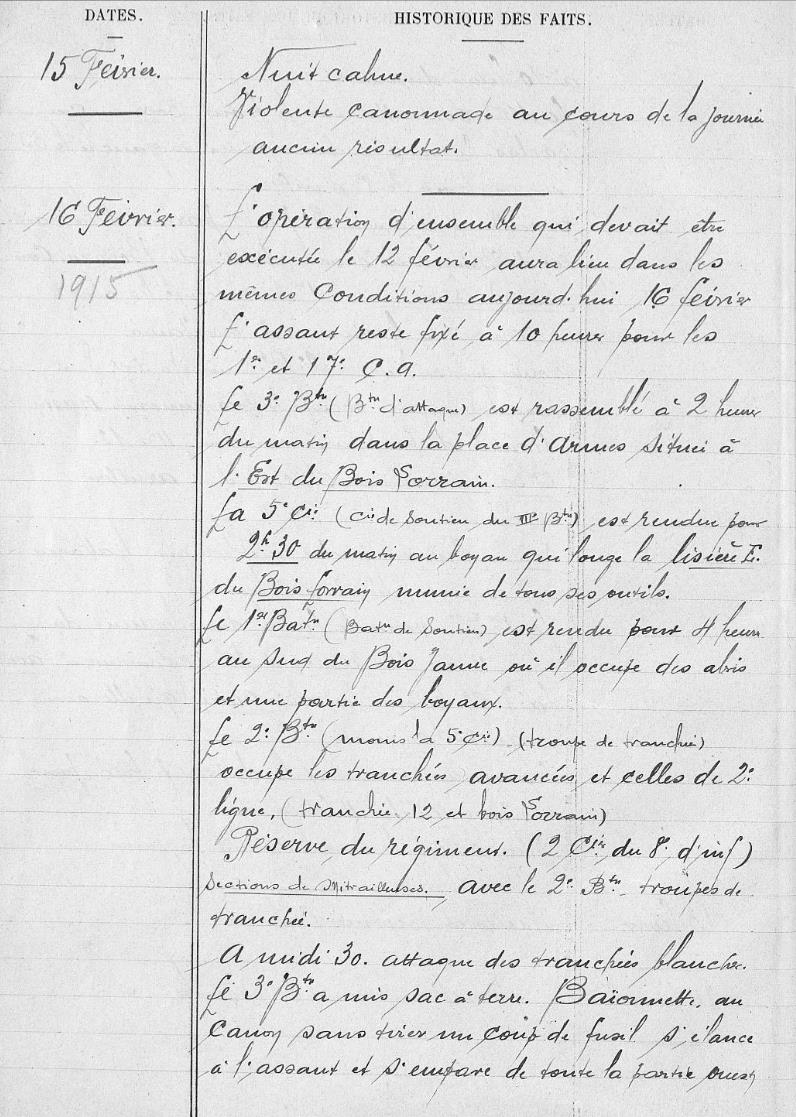 DATES.
HISTORIQUE DES FAITS.
15 Février.
Nuit calme.
Violente canonnade au cours de la journée
aucun résultat.
16 Février.
1915
L'opération d'ensemble qui devait être
exécutée le 12 février aura lieu dans les
mêmes conditions aujourd'hui 16 février
L'assaut reste fixé à 10 heures pour les
1er et 17e C.A.
Le 3e Btn (Btn d'attaque) est rassemblé à 2 heures
du matin dans la place d'Armes située à
l'Est du Bois Lorrain.
La 5e Cie (Cie de Soutien du IIIe Btn) est rendue pour
2h30 du matin au boyau qui longe la lisière E.
du Bois Lorrain munie de tous ses outils.
Le 1er Batn (Batn de Soutien) est rendu pour 4 heures
au Sud du Bois Jaune où il occupe des abris
et une partie des boyaux.
Le 2e Btn (moins la 5e Cie) (troupe de tranchée)
occupe les tranchées avancées et celles de 2e
ligne, (tranchée 12 et bois Lorrain)
Réserve du régiment. (2 Cies du 8e d'inf)
Sections de Mitrailleuses. avec le 2e Btn troupes de
tranchée.
A midi 30. attaque des tranchées blanches.
Le 3e Btn a mis sac à terre. Baïonnette au
Canon sans tirer un coup de fusil s'élance
à l'assaut et s'empare de toute la partie ouest